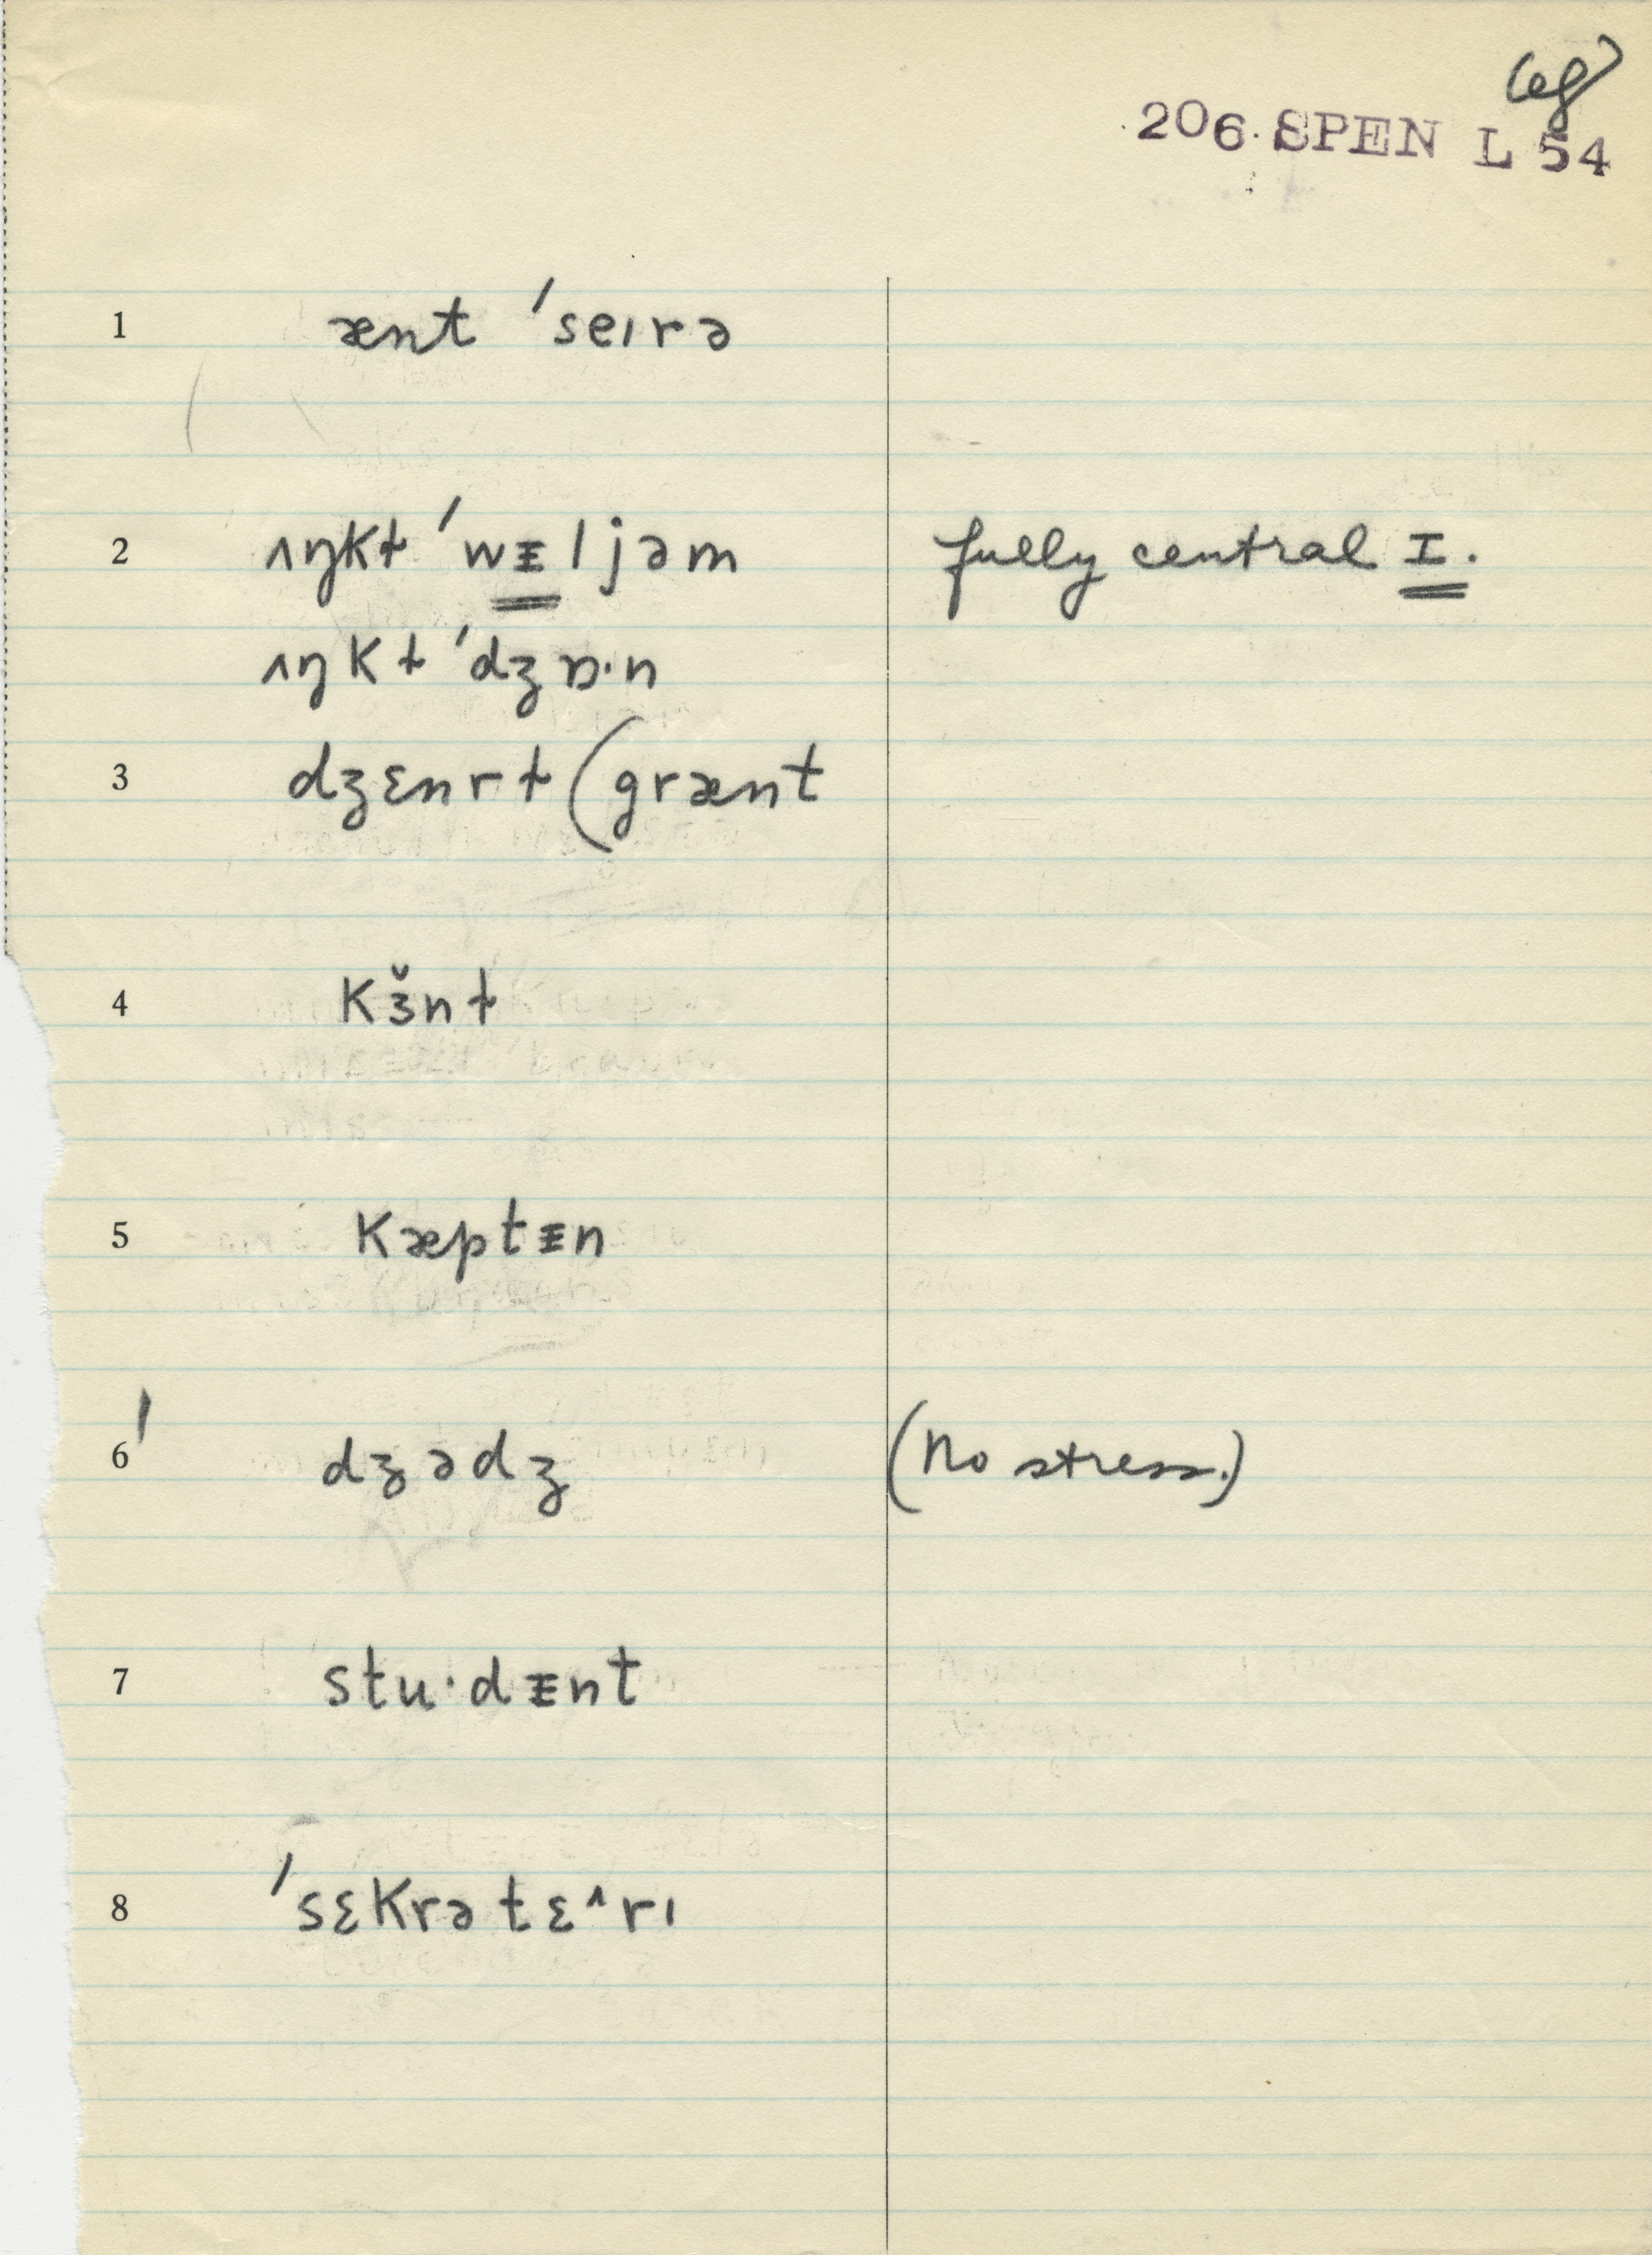 (eg)
206 SPEN L 54
1 ænt ˈseɪrə
2 ʌŋkɫ ˈwᵻljəm fully central I.
ʌŋkɫ ˈdʒɒ·n
3 dʒɛnrɫ (grænt
4 kɜ̆nɫ
5 kæptᵻn
6 ˈ dʒədʒ (No stress.)
7 stu·dᵻnt
8 ˈsɛkrətɛ^rɪ